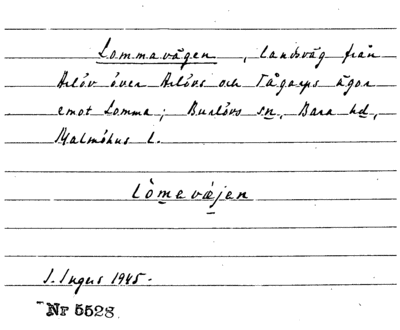 Lommavägen, landsväg från
Arlöv över Arlövs och Tågarps ägor
emot Lomma; Burlövs sn, Bara hd,
Malmöhus l.
lòmevæjen
I. Ingers 1945.
Nr 5528